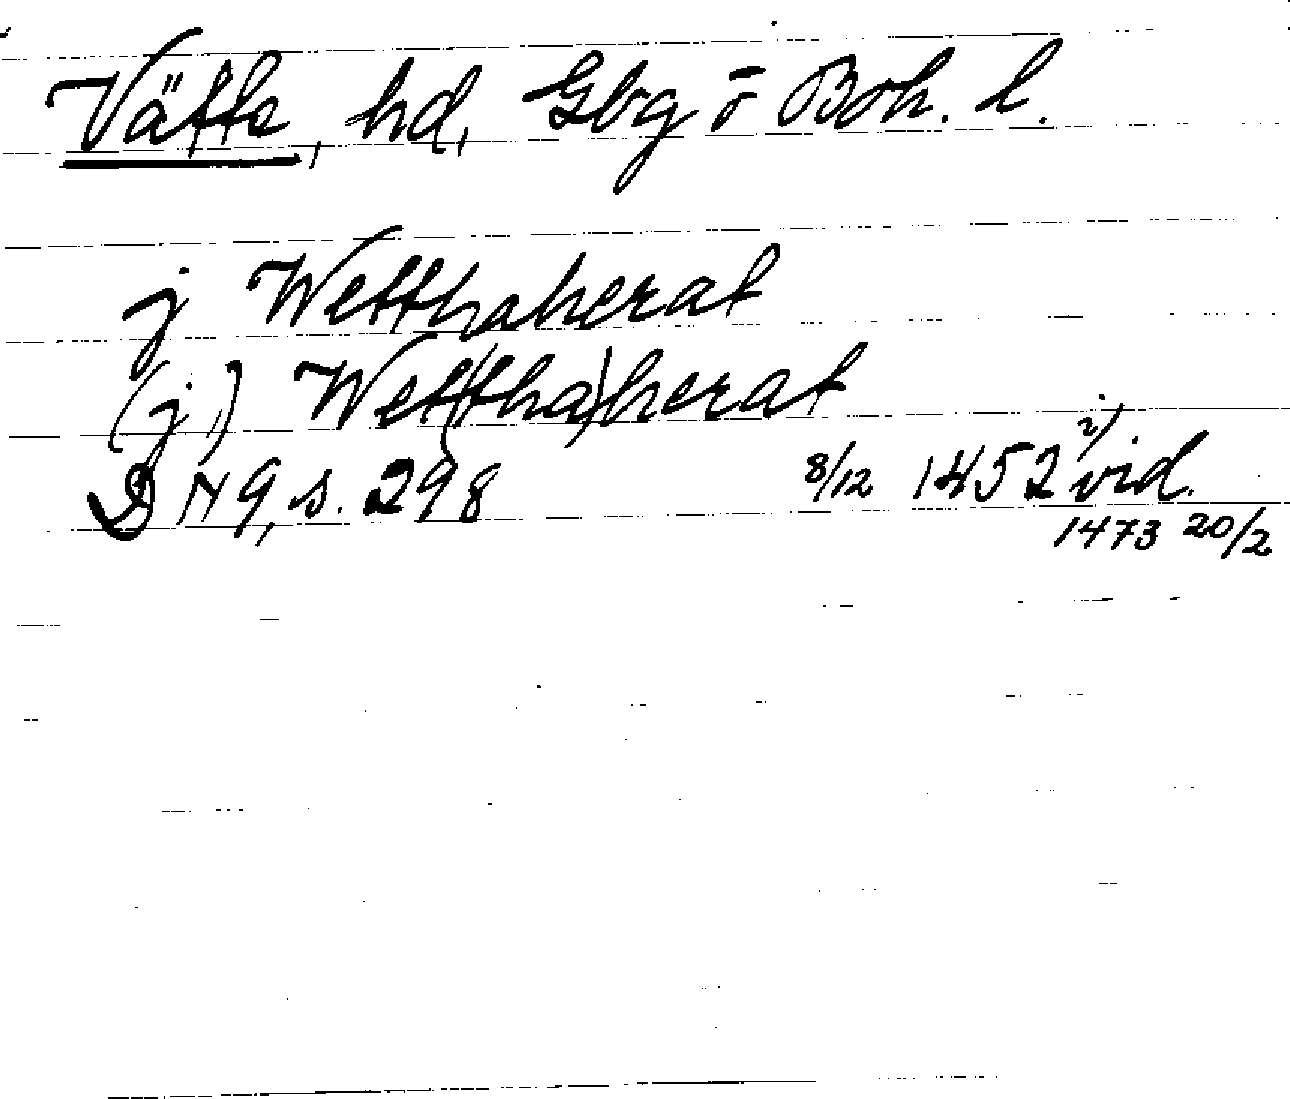 Vätte, hd, Gbg o Boh. l.
j Wetthaherat
(j) Wet(tha)herat
DN 9, s. 298 8/12 1452 2) vid.
1473 20/2